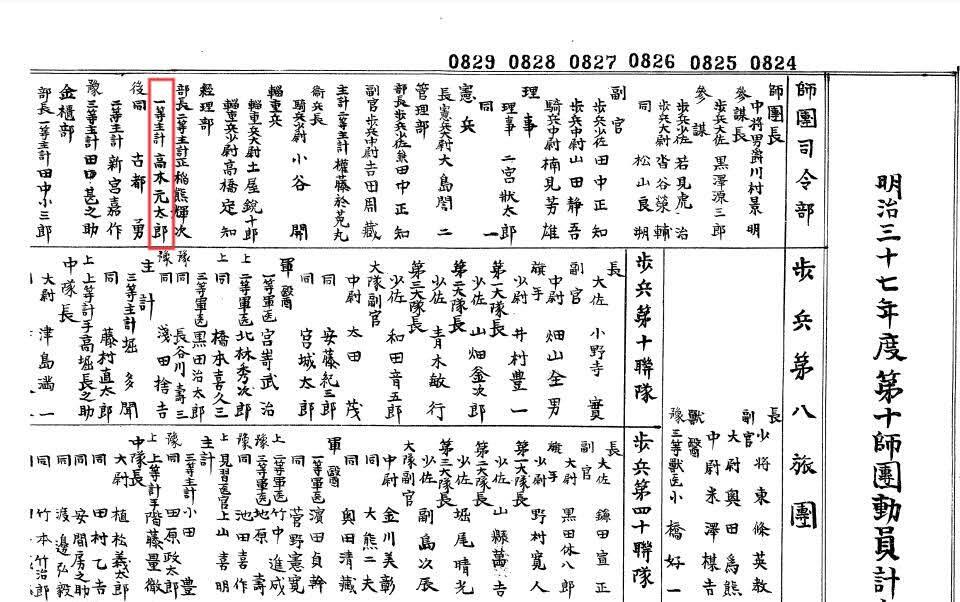 0829 0828 0827 0826 0825 0824
明治三十七年度第十師團動員計
師團司令部
師團長
中將男爵川村景明
參謀長
歩兵大佐 黒澤源三郎
參謀
歩兵少佐 若見虎治
歩兵大尉
同 松山良朔
副官
歩兵少佐 田中正知
歩兵中尉 山田静吾
騎兵中尉 楠見芳雄
理事
理事 二宮狀太郎
同
憲兵
長憲兵大尉 大島閏二
管理部
部長歩兵少佐兼 田中正知
副官歩兵中尉 吉田周藏
主計 二等主計 權藤於菟丸
衛兵長
騎兵少尉 小谷閑
輜重兵
輜重兵大尉 土屋鋭十郎
輜重兵少尉 高橋定知
經理部
部長二等主計正 稲熊輝次
一等主計 高木元太郎
後同 古都勇
二等主計 新宮嘉作
豫三等主計 田口甚之助
金櫃部
部長一等主計 田中小三郎
歩兵第八旅團
長
少將 東條英教
副官
大尉 奥田爲熊
中尉 米澤楳吉
獸醫
豫三等獸医 小橋好一
歩兵第十聯隊
長
大佐 小野寺實
副官
中尉 畑山全男
旗手
少尉 井村豊一
第一大隊長
少佐 山畑釜次郎
第二大隊長
少佐 青木敏行
第三大隊長
少佐 和田音五郎
大隊副官
中尉 太田茂
同 安藤紀三郎
同 宮城太郎
軍醫
一等軍医 宮嵜武治
二等軍医 北林秀次郎
上同 橋本喜久三
三等軍医 黒田治太郎
豫同 長谷川壽三
豫同 淺田捨吉
主計
三等主計 堀多聞
同 藤村直太郎
上上等計手 高堀長之助
中隊長
大尉 津島満一
歩兵第四十聯隊
長
大佐 鎌田宣正
副官
大尉 黒田休八郎
旗手
少尉 野村寛人
第一大隊長
第二大隊長
少佐 堀尾晴光
第三大隊長
少佐 副島次辰
大隊副官
中尉 金川美彰
同 大熊二夫
同 奥田清藏
軍醫
一等軍医 濱田貞幹
同 菅野憲寛
上二等軍医 竹中進成
豫二等軍医 地原壽
豫三等軍医 池田喜作
上見習医官 上山喜明
主計
三等主計 小田豊
豫同 田原政太郎
上上等計手 階藤量徹
中隊長
大尉 植松義太郎
同 田村乙吉
同 安間房之助
同 渡邉弘毅
同 竹本竹治郎